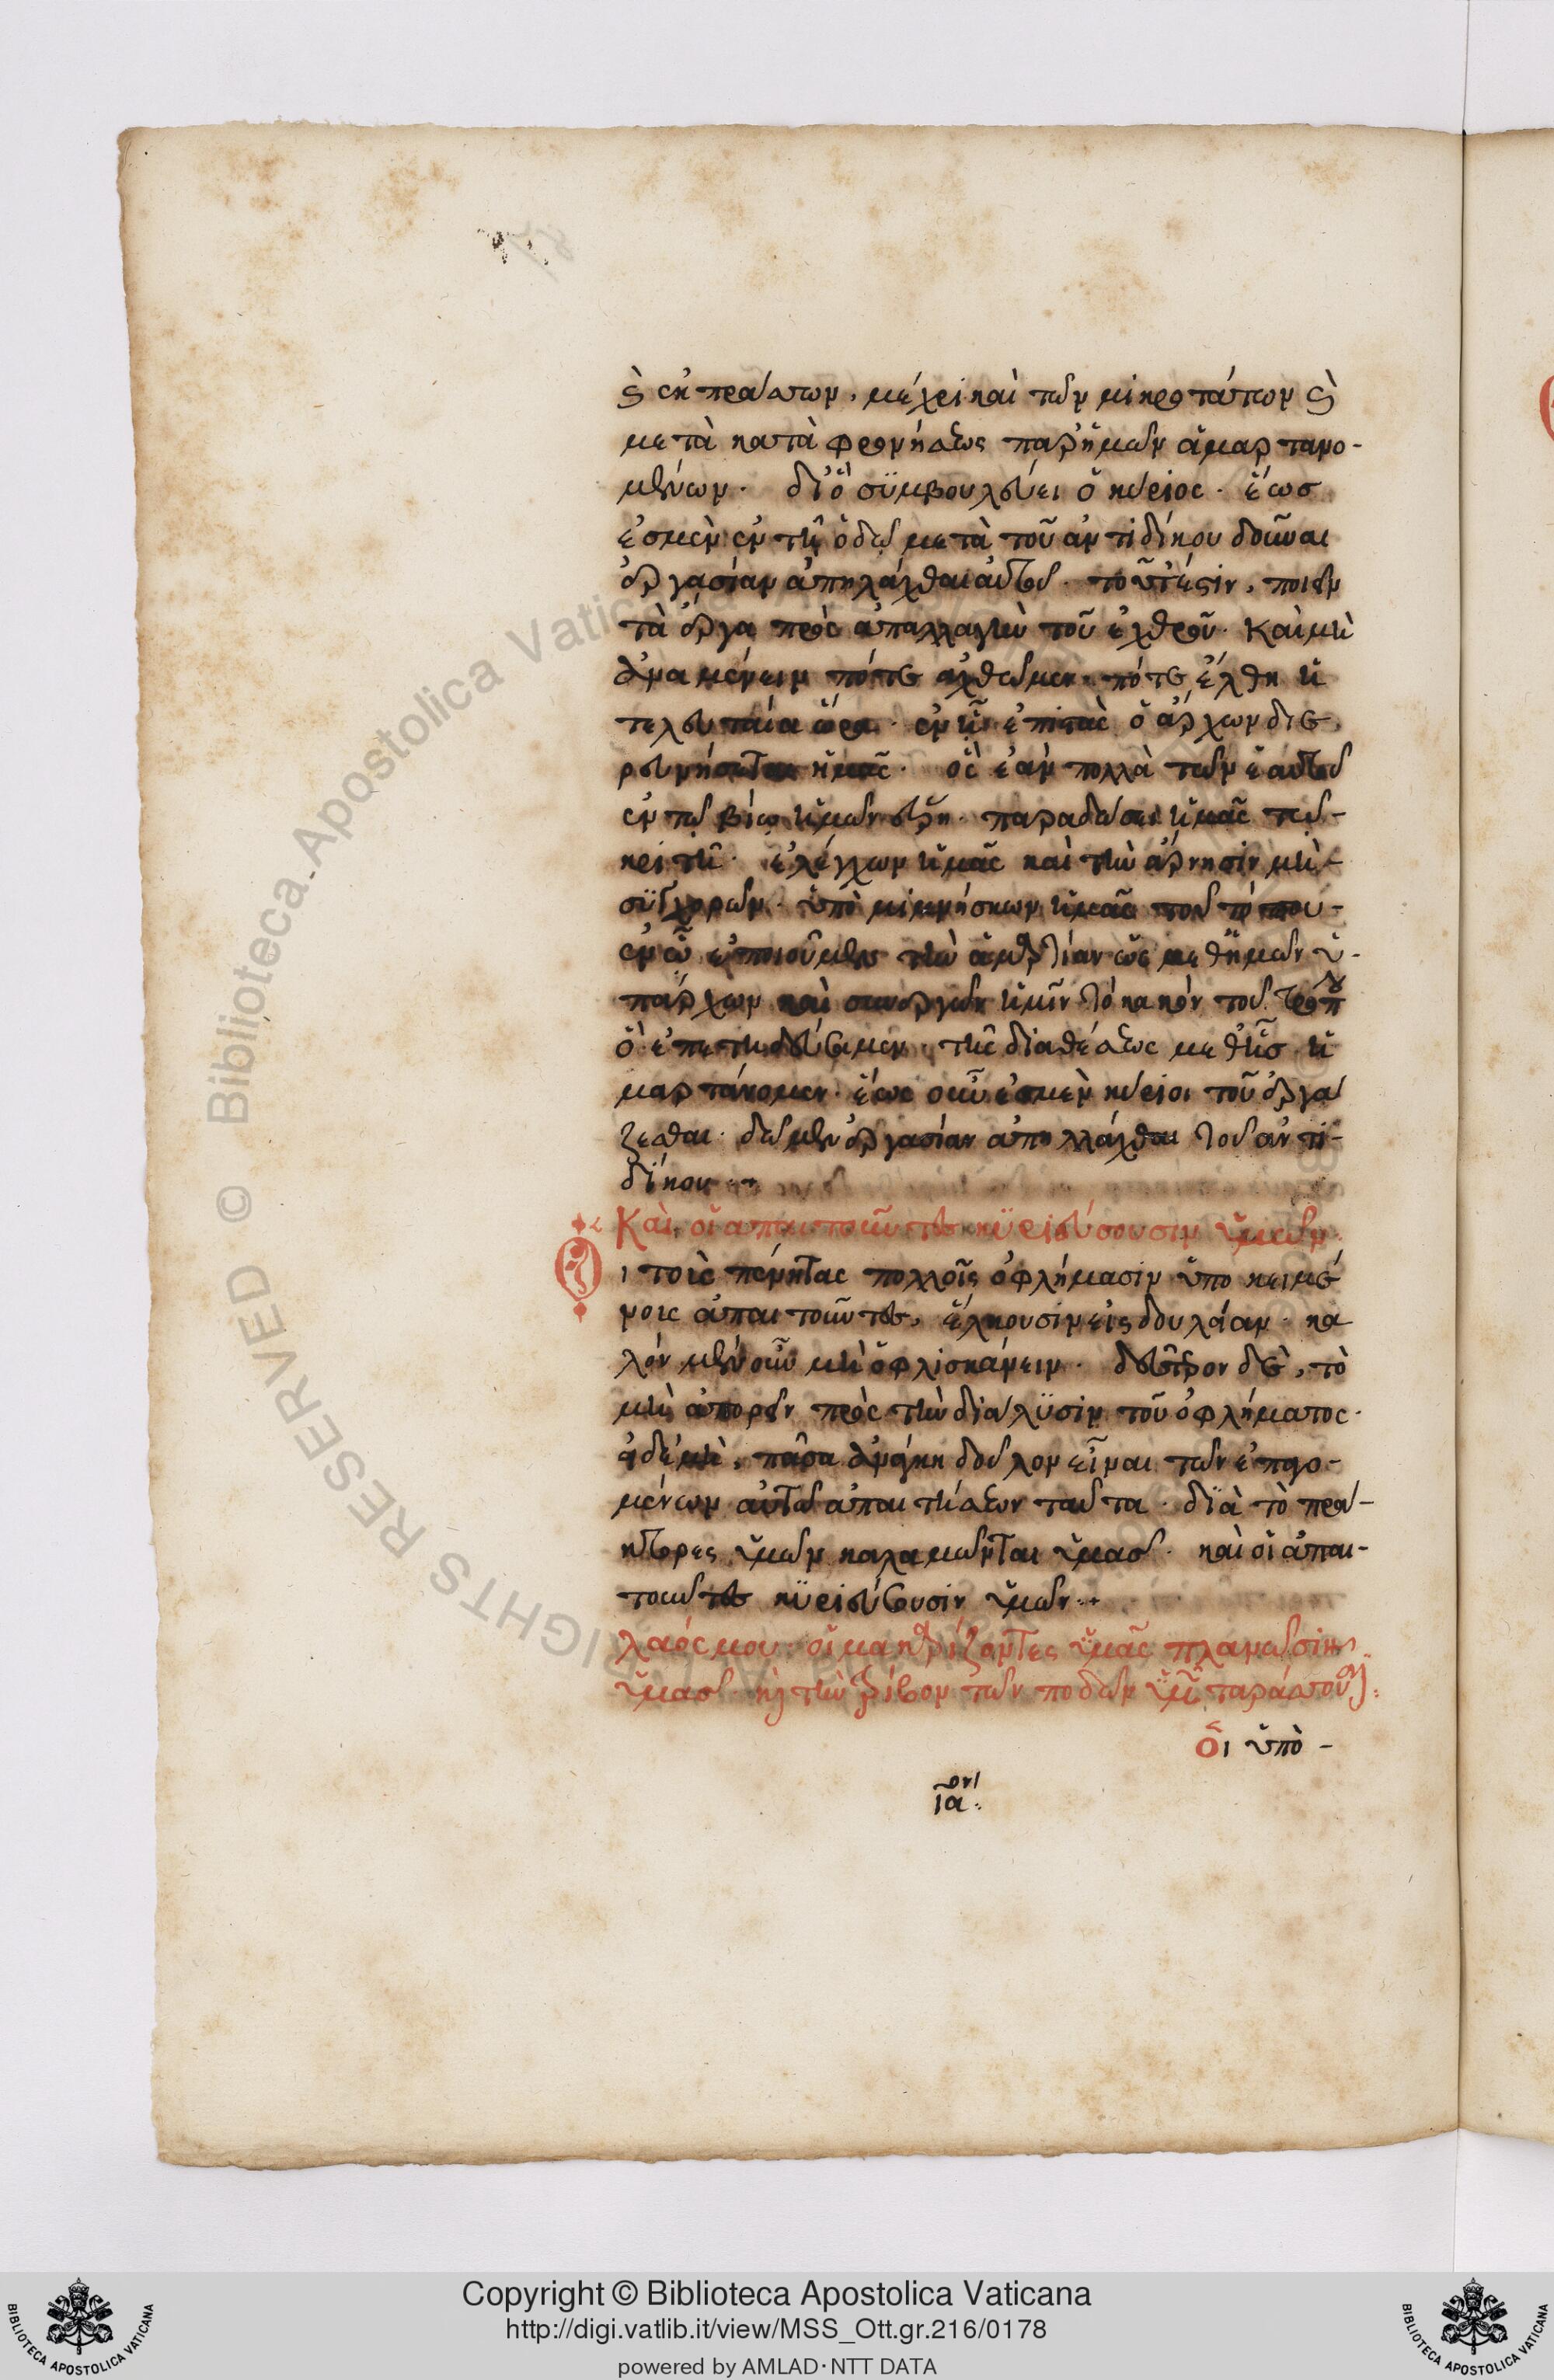 καὶ ἐκπράσσων, μέχρι καὶ τῶν μικροτάτων καὶ
μετὰ καταφρονήσεως παρ' ἡμῶν ἁμαρτανο-
μένων. διὸ συμβουλεύει ὁ κύριος. ἕως
ἐσμὲν ἐν τῇ ὁδῷ μετὰ τοῦ ἀντιδίκου δοῦναι
ἐργασίαν ἀπηλάχθαι αὐτοῦ. τοῦτέστιν, ποιεῖν
τὰ ἔργα πρὸς ἀπαλλαγὴν τοῦ ἐχθροῦ. Καὶ μὴ
ἀναμένειν πότε ἀχθῶμεν. πότε ἔλθη ἡ
τελευταία ὥρα. ἐν ᾗ ἐπιστὰς ὁ ἄρχων διε
ρευνήσεται ἡμᾶς. ὃς ἐὰν πολλὰ τῶν ἑαυτοῦ
ἐν τῷ βίῳ ἡμῶν εὕρη. παραδώσει ἡμᾶς τῷ-
κριτῇ. ἐλέγχων ἡμᾶς καὶ τὴν ἄρνησιν μὴ-
συγχωρῶν. ὑπομιμνήσκων ἡμᾶς τοῦ τόπου-
ἐν ᾧ ἐποιοῦμεν τὴν ἁμαρτίαν ὡς μεθ' ἡμῶν ὑ-
πάρχων καὶ συνεργῶν ἡμῖν τὸ κακόν τοῦ τρόπου
ὃ ἐπετηδεύσαμεν. τῆς διαθέσεως μεθ' ἧσ ἡ
μαρτάνομεν. ἕως οὖν ἐσμὲν κύριοι τοῦ ἐργά
ζεσθαι. δῶμεν ἐργασίαν ἀπηλλάχθαι τοῦ ἀντι-
δίκου
Καὶ οἱ ἀπαιτοῦντες κυριεύσουσιν ὑμῶν.
Οἱ τοὶς πένητας πολλοῖς ὀφλήμασιν ὑποκειμέ
νοις ἀπαιτοῦντες, ἕλκουσιν εἰς δουλείαν. κα
λόν μὲν οὖν μὴ ὀφλισκάνειν. δεύτερον δὲ, τὸ
μὴ ἀπορεῖν πρὸς τὴν διάλυσιν τοῦ ὀφλήματος.
εἰ δὲ μὴ, πᾶσα ἀνάγκη δοῦλον εἶναι τῶν ἐπαγο-
μένων αὐτῷ ἀπαιτήσεων ταῦτα. διὰ τὸ πρά-
κτορες ὑμῶν καλαμῶνται ὑμασ. καὶ οἱ ἀπαι-
τοῦντες κυριεύσουσιν ὑμῶν
λαός μου. οἱ μακαρίζοντες ὑμᾶς πλανῶσιν
ὑμασ. καὶ τὴν τρίβον τῶν ποδῶν ὑμῶν ταράσσουσι
Οἱ ὑπὸ-
ια
Copyright © Biblioteca Apostolica Vaticana
http://digi.vatlib.it/view/MSS_Ott.gr.216/0178
powered by AMLAD·NTT DATA